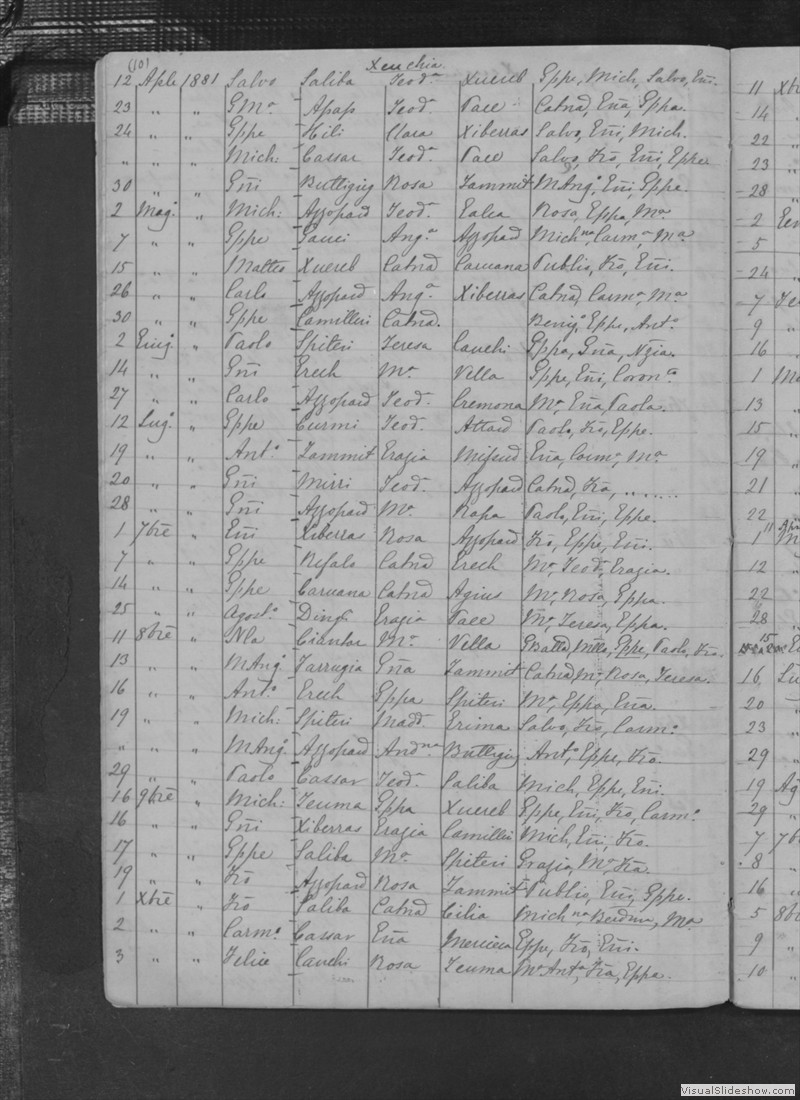 (10) Xeuchia
12 Aple 1881 Salvo Saliba Teod.a Xuereb Gppe, Mich, Salvo, Eñi.
23 „ „ GMa Apap Teod. Pace Catnd, Eña, Gppa.
24 „ „ Gppe Hili Clara Xiberras Salvo, Eñi, Mich.
„ „ „ Mich: Cassar Teod.a Pace Salvo, Fco, Eñi, Eppe
30 „ „ Gñi Buttigieg Rosa Zammit MAng.o Eñi, Gppe.
2 Mag. „ Mich: Azzopard Teod. Ealea Rosa, Eppa, Ma
7 „ „ Gppe Gauci Ang.a Azzopard Michna, Carm.a Ma
15 „ „ Matteo Xuereb Catnd Caruana Publio, Fco, Eñi.
26 „ „ Carlo Azzopard Ang.a Xiberras Catnd, Carm.a Ma
30 „ „ Gppe Camilleri Catnd. Benig.o Eppe, Ant.o
2 Eiug. „ Paolo Spiteri Teresa Cauchi Gppa, Gña, Ngia.
14 „ „ Gñi Erech Ma Vella Gppe, Eñi, Coron.a
27 „ „ Carlo Azzopard Teod. Cremona Ma, Eña, Paola.
12 Lug. „ Gppe Curmi Teod. Attard Paolo, Fco, Eppe.
19 „ „ Ant.o Zammit Erazia Mifsud Eña, Carm.a Ma
20 „ „ Gñi Mizzi Teod. Azzopard Catnd, Fca, ........
28 „ „ Gñi Azzopard Ma Rapa Paolo, Eñi, Eppe.
1 7bre „ Eñi Xiberras Rosa Azzopard Fco, Eppe, Eñi.
7 „ „ Eppe Refalo Catnd Erech Ma, Teod, Erazia.
14 „ „ Eppe Caruana Catnd Agius Ma, Rosa, Eppa.
25 „ „ Agost.o Dingli Erazia Pace Ma, Teresa, Eppa.
11 8bre „ Nla Ciantar Ma Vella Eppe, Paolo, Fco.
13 „ „ MAng.o Farrugia Gña Zammit Catnd, Ma, Rosa, Teresa.
16 „ „ Ant.o Erech Eppa Spiteri Ma, Eppa, Eña.
19 „ „ Mich: Spiteri Madd. Erima Salvo, Fco, Carm.o
„ „ „ MAng.o Azzopard Andna Buttigieg Ant.o, Eppe, Fco.
29 „ „ Paolo Cassar Teod. Saliba Mich, Eppe, Eñi.
16 9bre „ Mich: Teuma Eppa Xuereb Eppe, Eñi, Fco, Carm.o
16 „ „ Gñi Xiberras Erazia Camilleri Mich, Eñi, Fco.
17 „ „ Eppe Saliba Ma Spiteri Grazia, Ma, Fca.
19 „ „ Fco Azzopard Rosa Zammit Publio, Eñi, Gppe.
1 Xbre „ Fco Saliba Catnd Cilia Michna Ma
2 „ „ Carm.o Cassar Eña Mercieca Eppe, Fco, Eñi.
3 „ „ Felice Cauchi Rosa Teuma Ma Ant.a, Fca, Eppa.
11 Xbre
14
22
23
28
2
5
24
7
9
16
1
13
15
19
21
22
1
12
22
28
15
16
20
23
29
19 Ag
29
7 7b
8
16
5 8b
9
10
VisualSlideshow.com